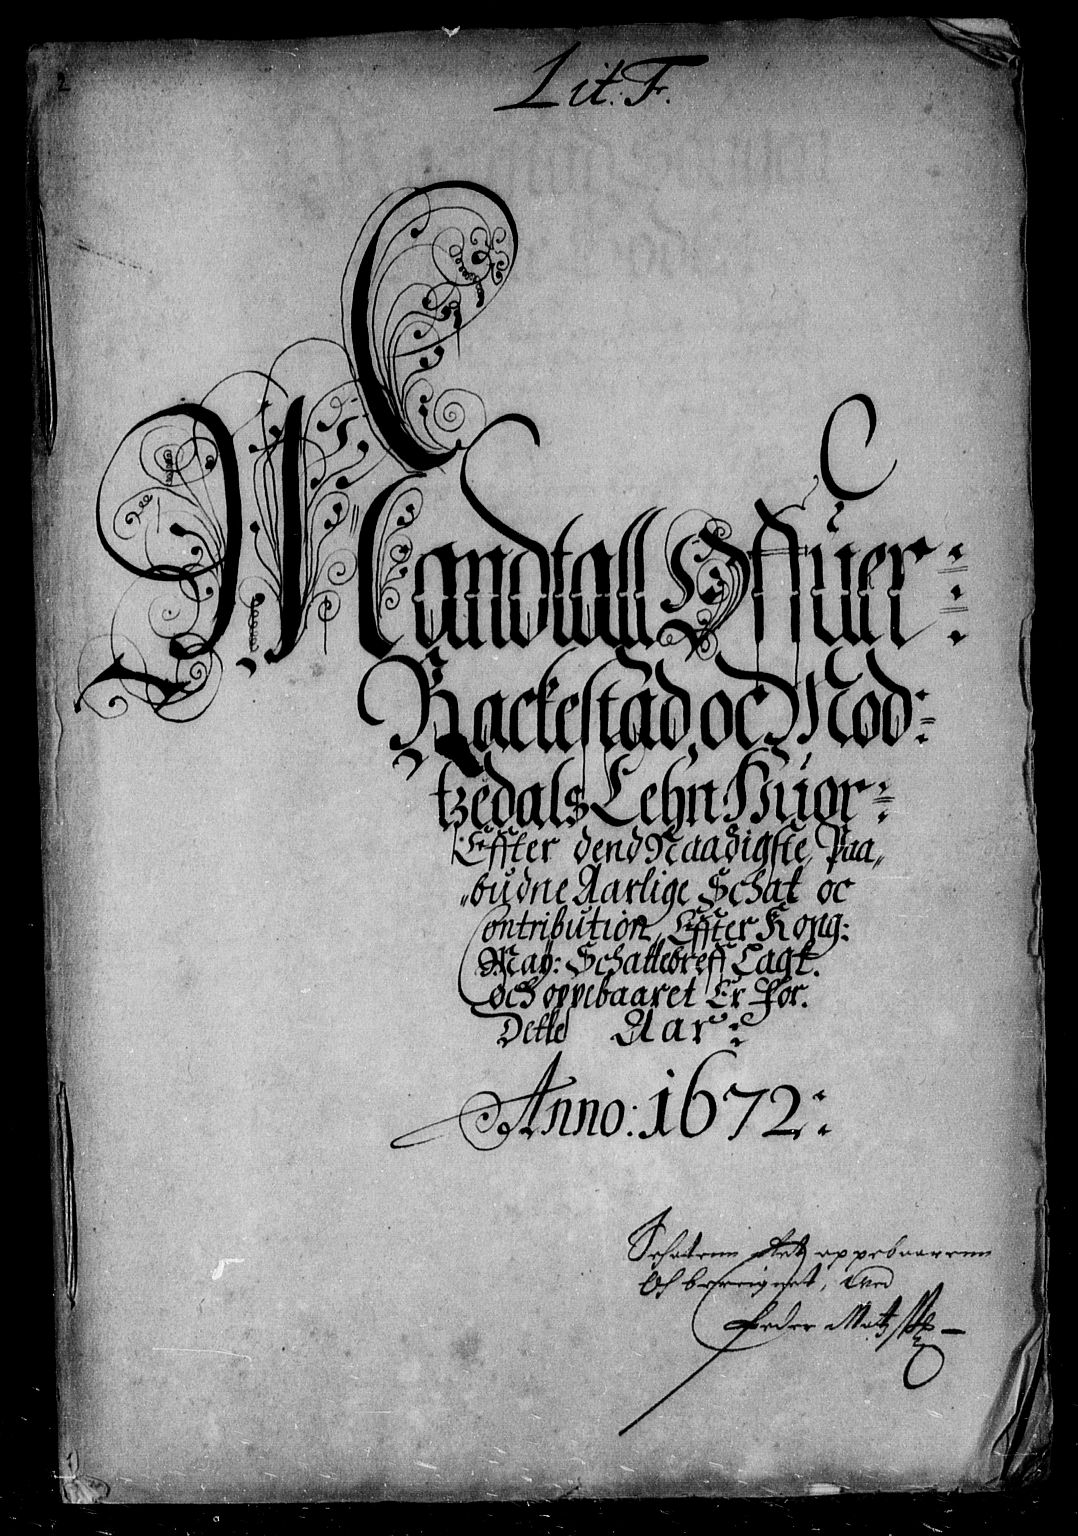 2
Lit: F.
Mandtall Offuer:
Rackestad, oc Mod:
tzedals Lehn Huor:
Effter dend Naadigste, Paa„
„budne Aarlige Schat oc
Contribution, Effter Kong:
May: Schattebreff Lagt.
och oppebaaret Er for.
Dette Aar:
Anno: 1672:
oppebaarenn
Och bereignet, Ved
Peder Matz